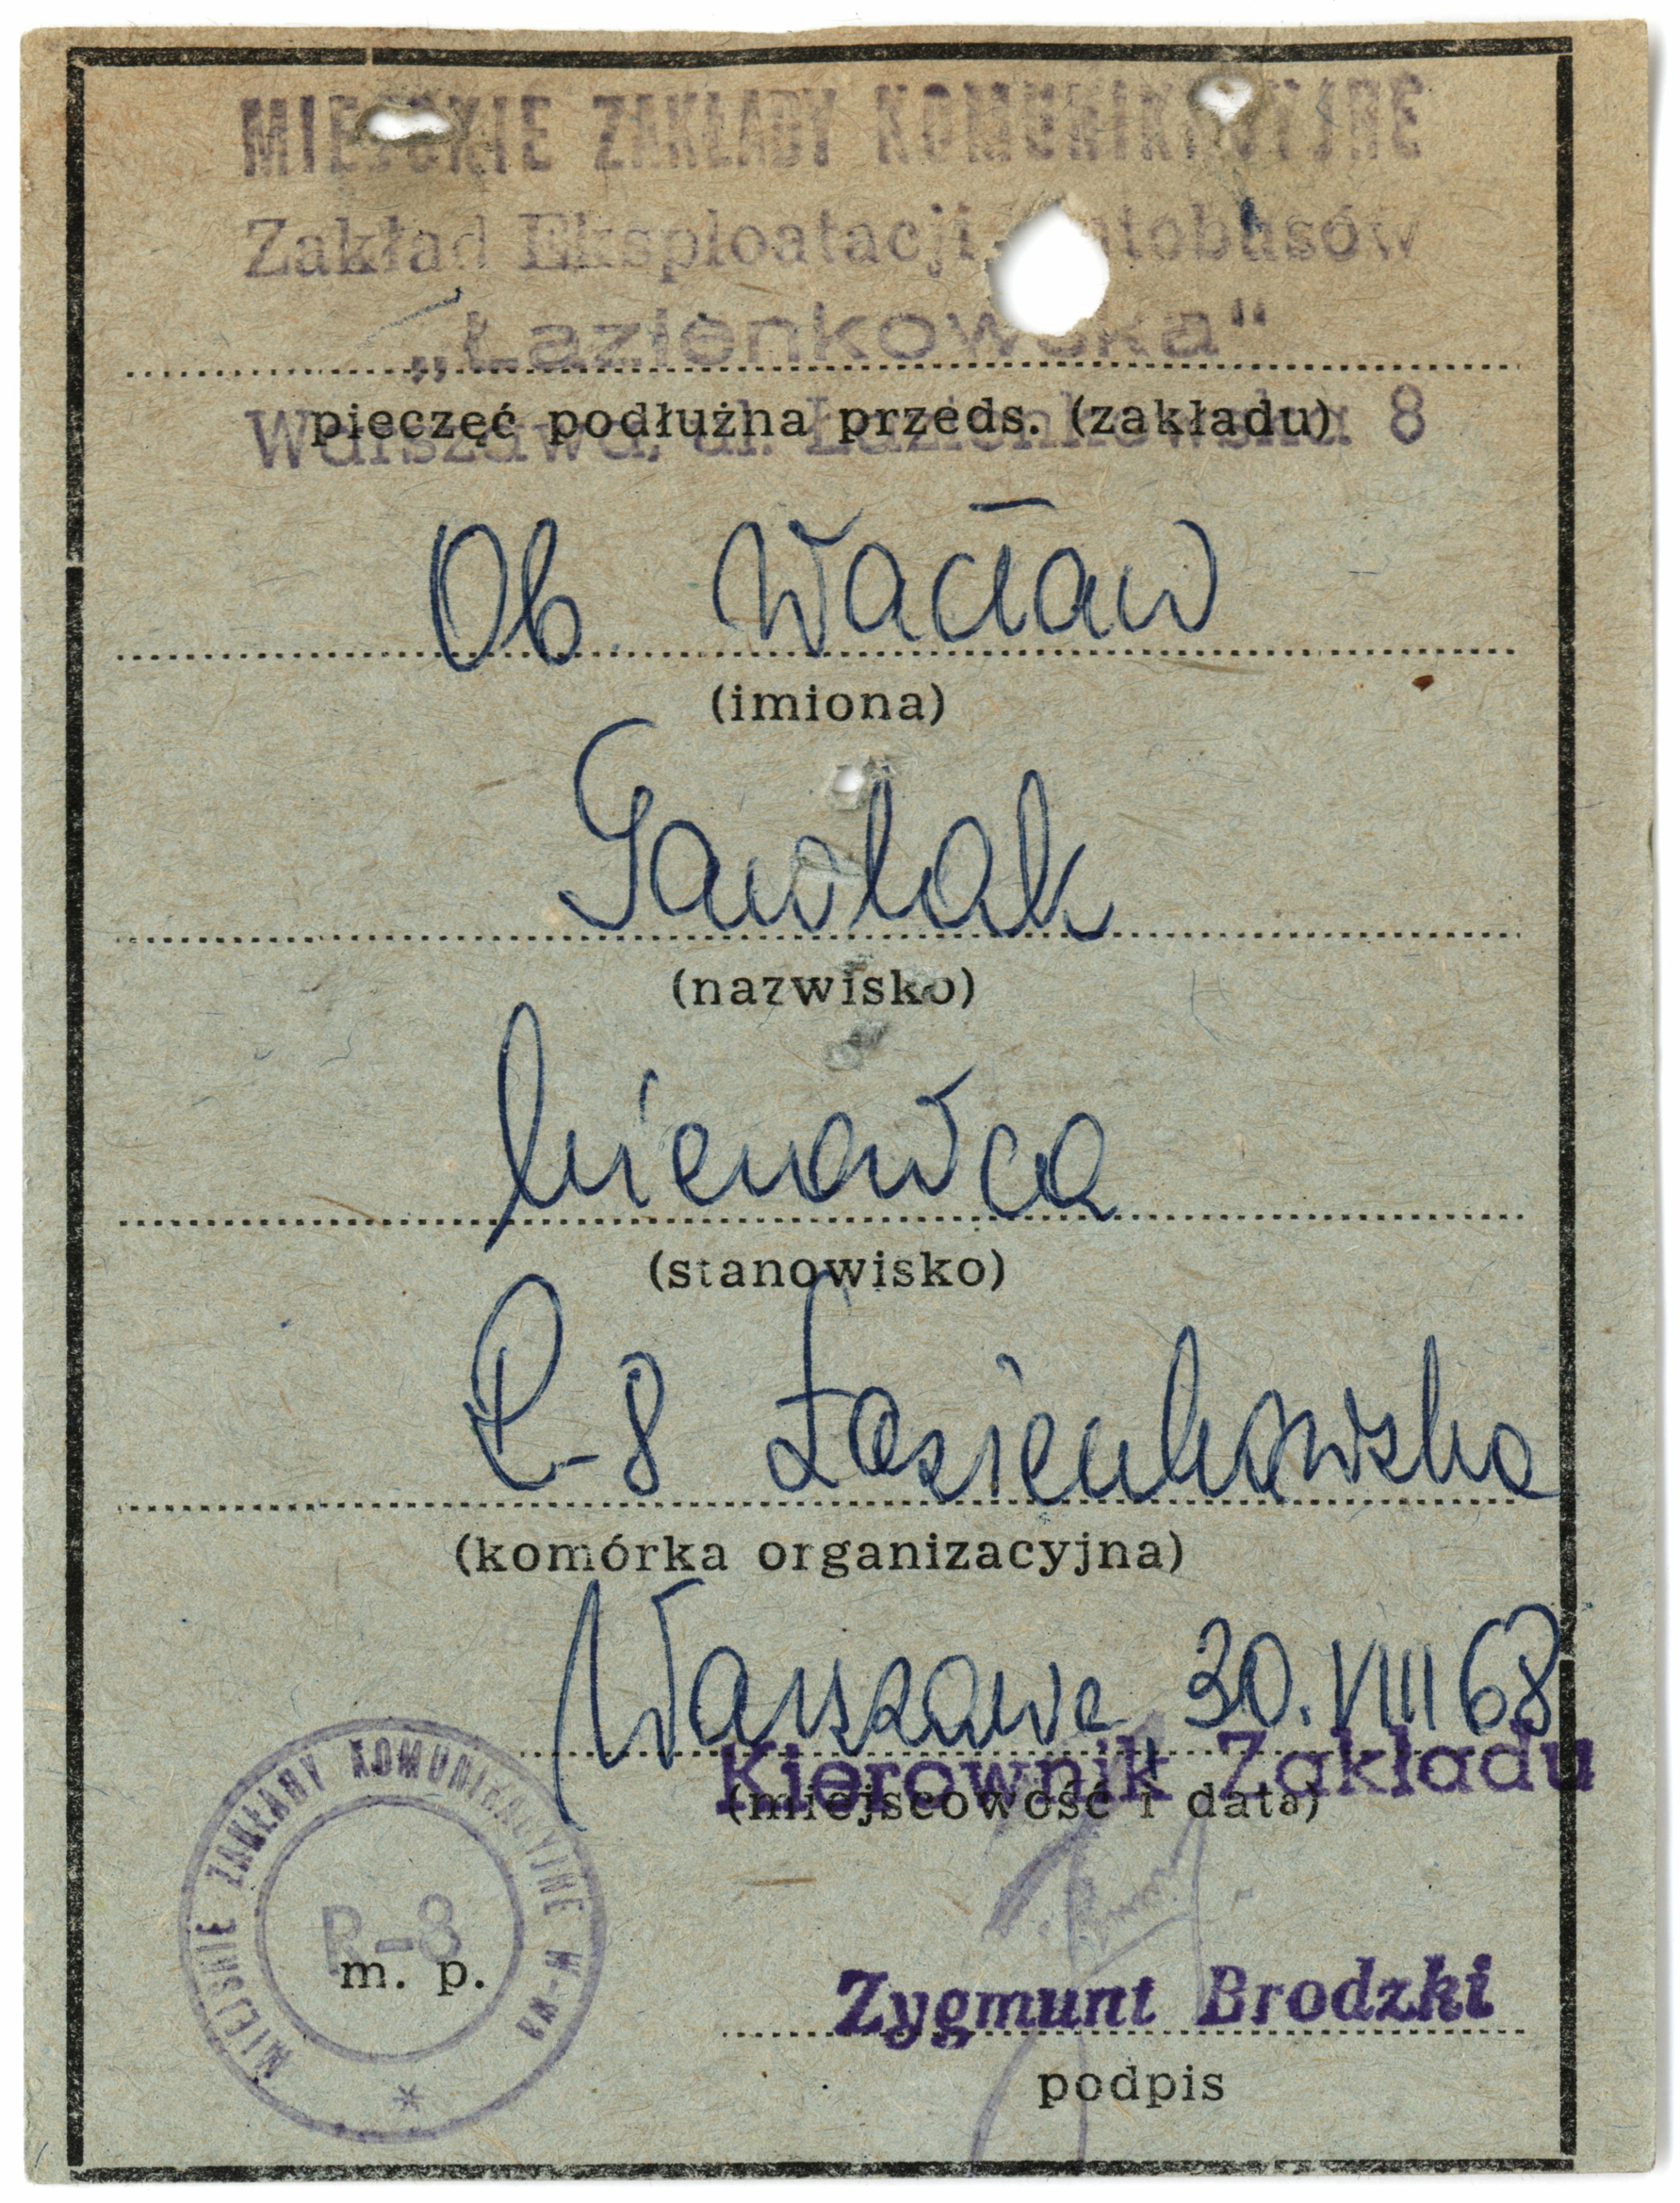 MIEJSKIE ZAKŁADY KOMUNIKACYJNE
Zakład Eksploatacji Autobusów
„Łazienkowska"
pieczęć podłużna przeds. (zakładu)
Warszawa, ul. Łazienkowska 8
Ob. Wacław
(imiona)
Gawlak
(nazwisko)
kierowca
(stanowisko)
R-8 Łazienkowska
(komórka organizacyjna)
Warszawa 30.VIII 68
Kierownik Zakładu
(miejscowość i data)
MIEJSKIE ZAKŁADY KOMUNIKACYJNE W-WA
R-8
m. p.
Zygmunt Brodzki
podpis